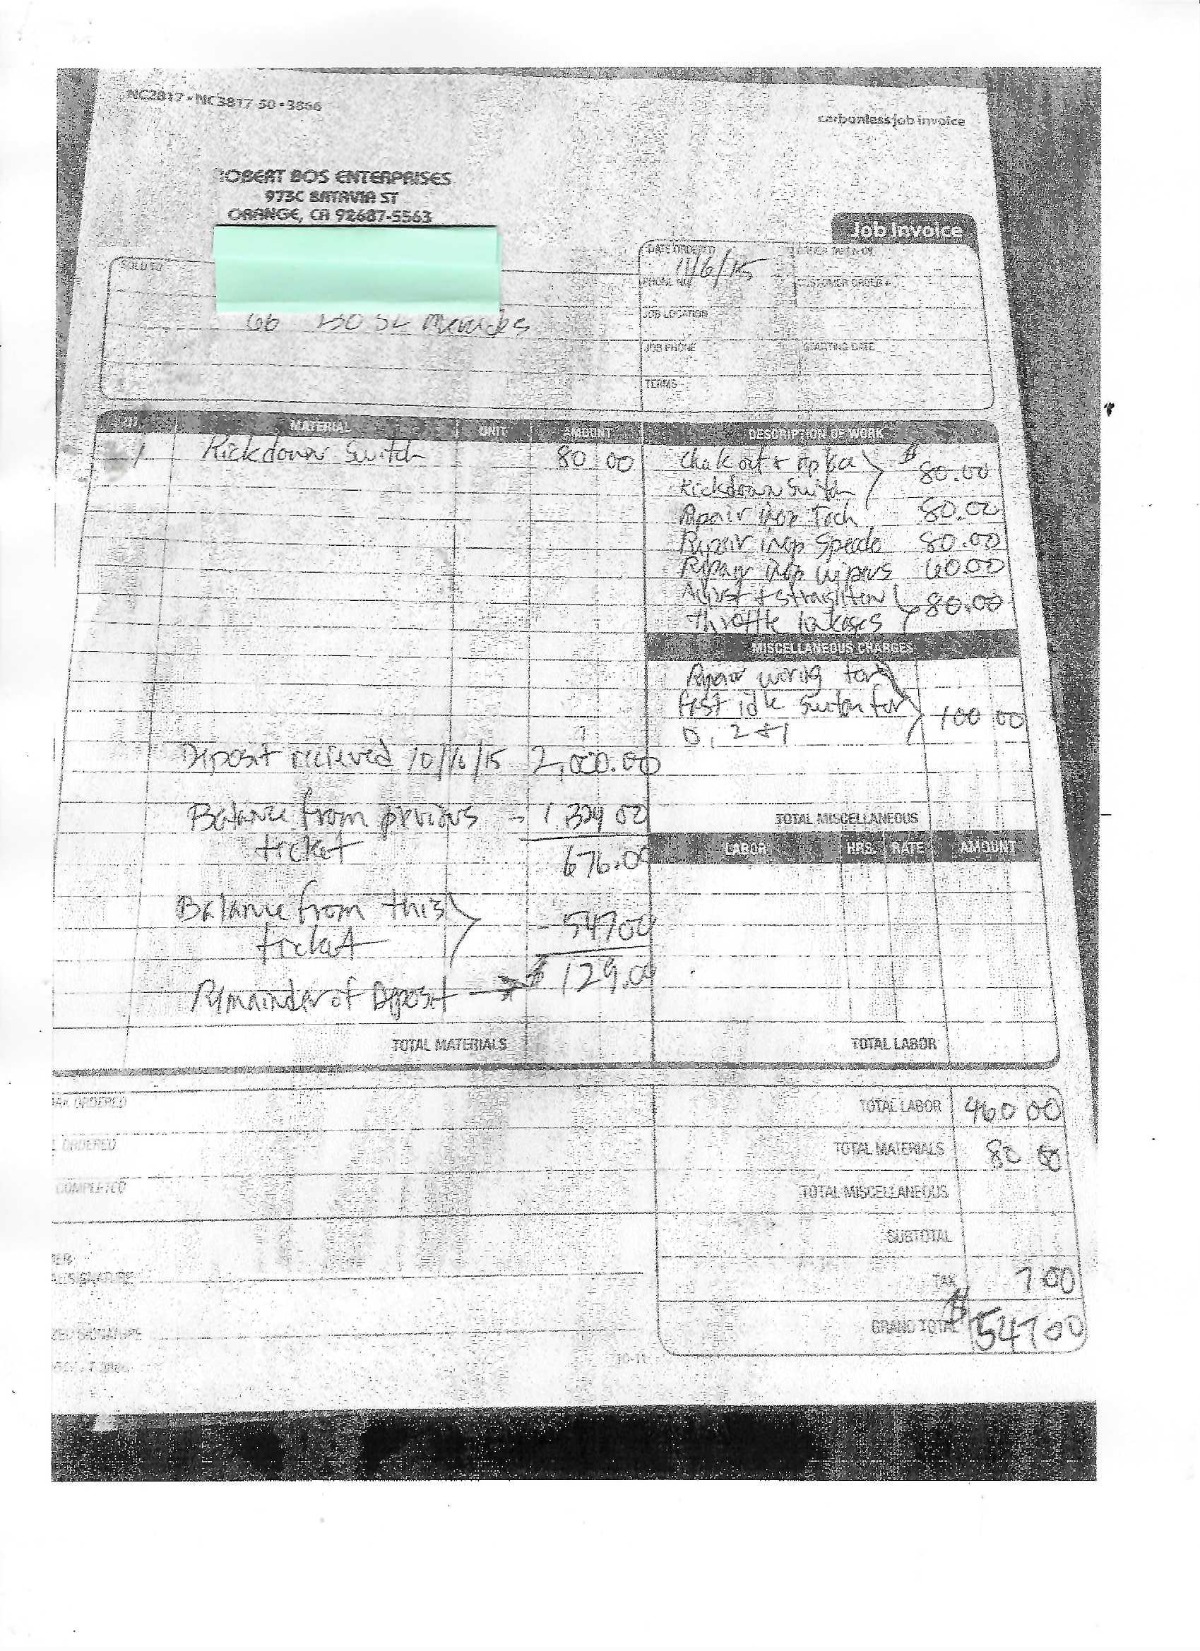 NC2817 • NC3817 50 • 3866
carbonless job invoice
OBERT BOS ENTERPRISES
973C BATAVIA ST
ORANGE, CA 92687-5563
Job Invoice
SOLD TO
DATE ORDERED
11/6/15
PHONE NO.
CUSTOMER ORDER #
JOB LOCATION
JOB PHONE
STARTING DATE
TERMS
66 230 SL Mercedes
QTY. MATERIAL UNIT AMOUNT DESCRIPTION OF WORK
1 Kickdown Switch 80 00
Chek out + replace $ 80.00
Kickdown Switch
Repair inop Tach 80.00
Repair inop Speedo 80.00
Repair inop wipers 60.00
Adjust + straighten 80.00
throttle linkages
MISCELLANEOUS CHARGES
Repair wiring for
fast idle system for 100 00
D, 2 + 1
Diposit recieved 10/16/15 2,000.00
Balance from previous - 1,324 00
ticket
676.00
TOTAL MISCELLANEOUS
LABOR HRS. RATE AMOUNT
Balance from this - 547 00
ticket
Remainder of Diposit → $ 129.00
TOTAL MATERIALS
TOTAL LABOR
ORDERED
TOTAL LABOR 460 00
ORDERED
TOTAL MATERIALS 80 00
COMPLETED
TOTAL MISCELLANEOUS
SUBTOTAL
SIGNATURE
TAX 7 00
SIGNATURE
GRAND TOTAL $ 547 00
10-11